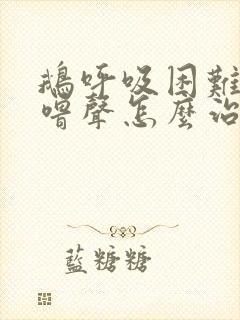 鵝呼吸困難
喘聲怎麼治
藍糖糖